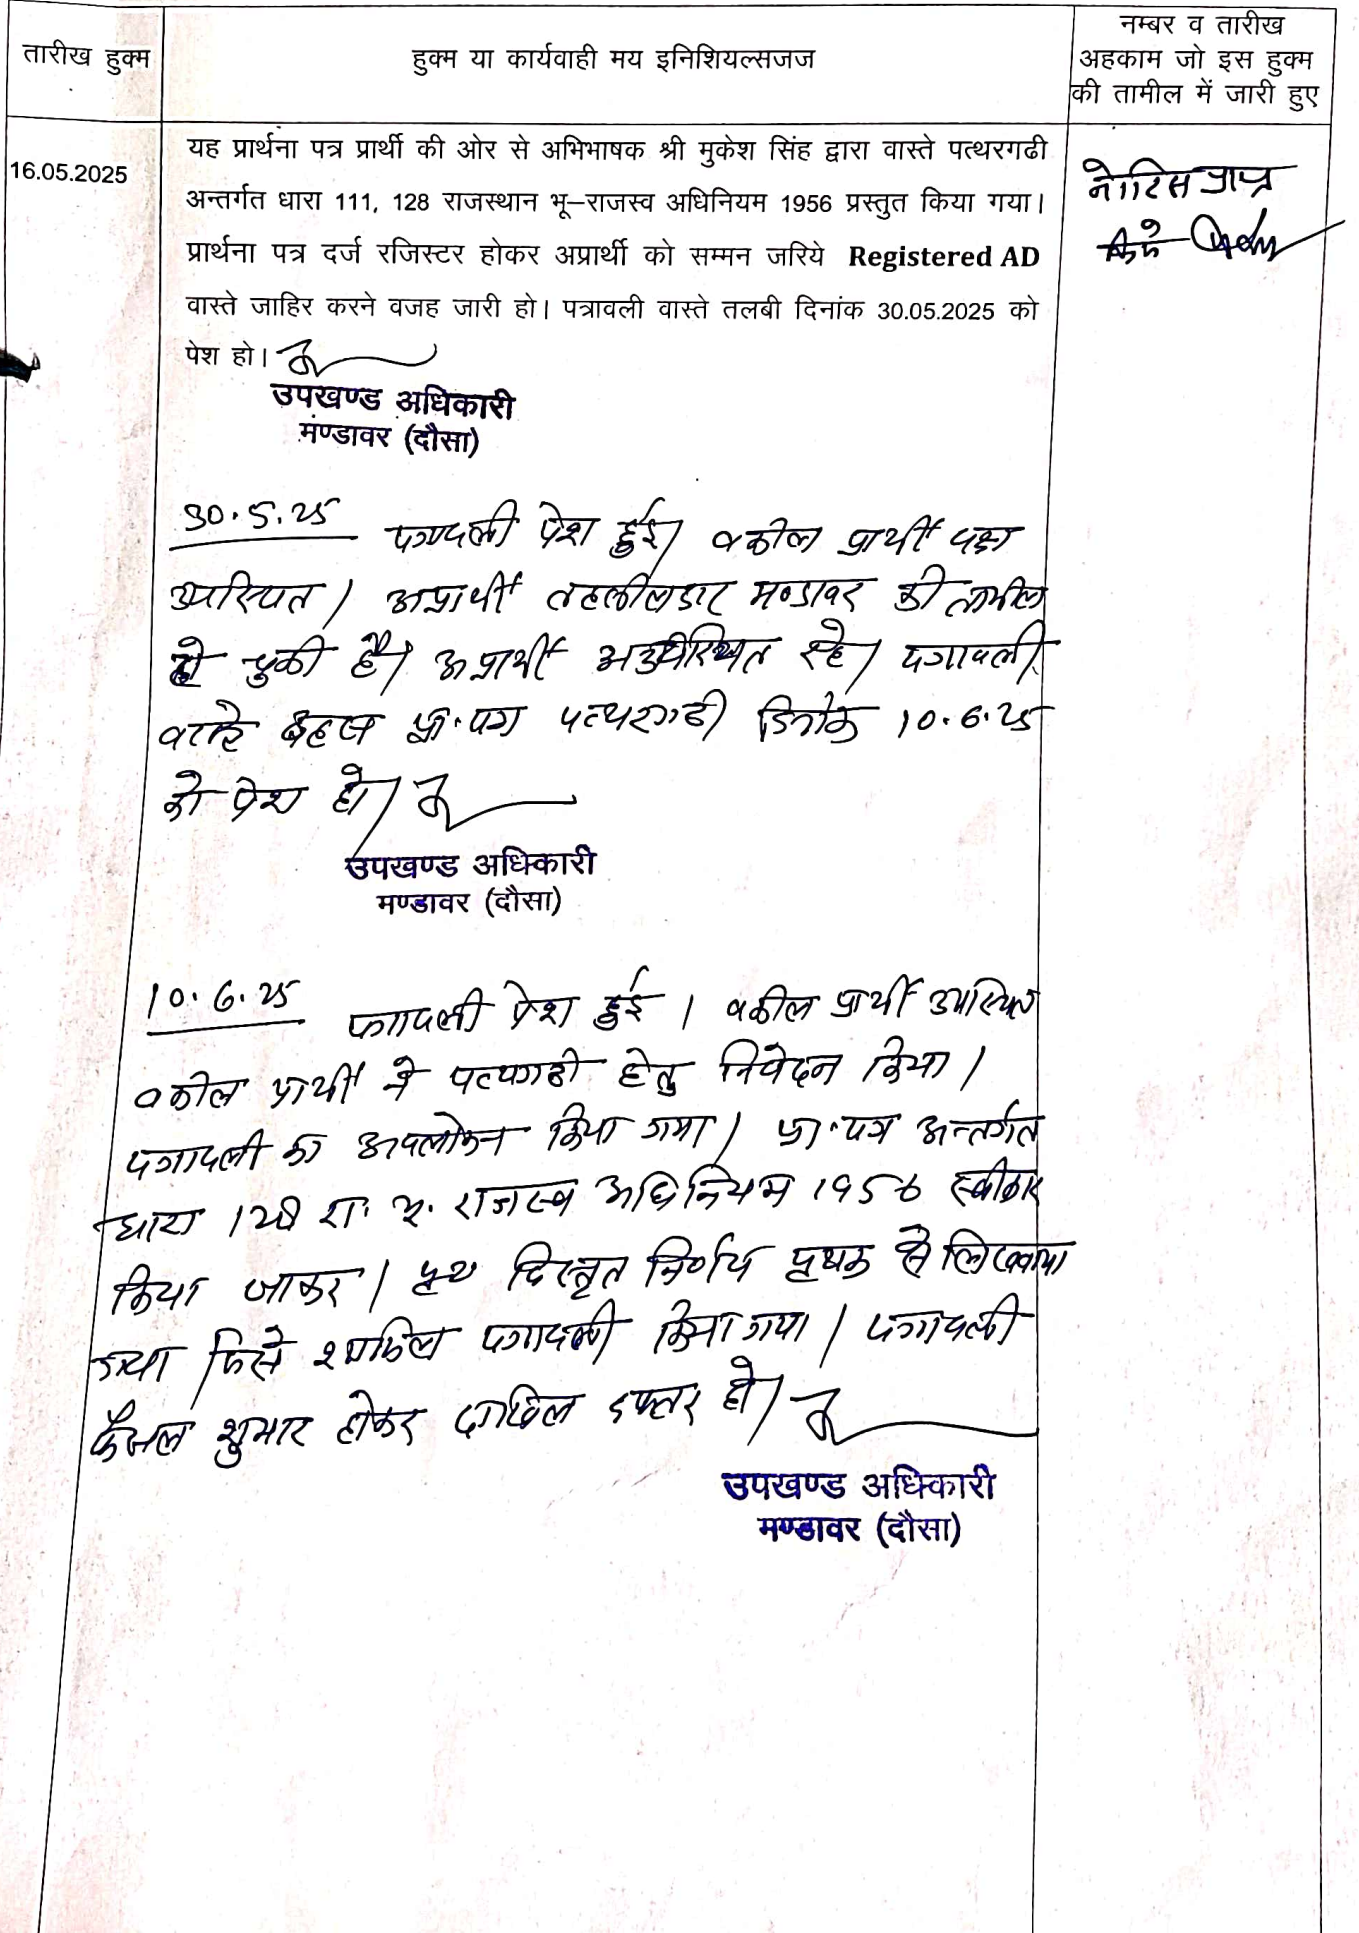 तारीख हुक्म
हुक्म या कार्यवाही मय इनिशियल्सजज
नम्बर व तारीख
अहकाम जो इस हुक्म
की तामील में जारी हुए
16.05.2025
यह प्रार्थना पत्र प्रार्थी की ओर से अभिभाषक श्री मुकेश सिंह द्वारा वास्ते पत्थरगढी
अन्तर्गत धारा 111, 128 राजस्थान भू–राजस्व अधिनियम 1956 प्रस्तुत किया गया।
प्रार्थना पत्र दर्ज रजिस्टर होकर अप्रार्थी को सम्मन जरिये Registered AD
वास्ते जाहिर करने वजह जारी हो। पत्रावली वास्ते तलबी दिनांक 30.05.2025 को
पेश हो।
उपखण्ड अधिकारी
मण्डावर (दौसा)
नोटिस प्राप्त
30.5.25 पत्रावली पेश हुई। वकील प्रार्थी पक्ष
उपस्थित। अप्रार्थी तहसीलदार मण्डावर की तामील
हो चुकी है। अप्रार्थी अनुपस्थित रहे। पत्रावली
वास्ते बहस प्रा.पत्र पत्थरगढी दिनांक 10.6.25
को पेश हो।
उपखण्ड अधिकारी
मण्डावर (दौसा)
10.6.25 पत्रावली पेश हुई। वकील प्रार्थी उपस्थित
वकील प्रार्थी ने पत्थरगढी हेतु निवेदन किया।
पत्रावली का अवलोकन किया गया। प्रा.पत्र अन्तर्गत
धारा 128 रा. भू. राजस्व अधिनियम 1956 स्वीकार
किया जाकर। विस्तृत निर्णय पृथक से लिखवाया
गया जिसे शामिल पत्रावली किया गया। पत्रावली
फैसल शुमार होकर दाखिल दफ्तर हो।
उपखण्ड अधिकारी
मण्डावर (दौसा)